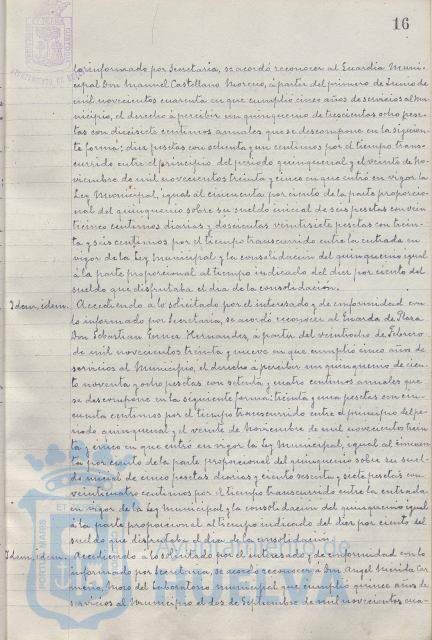 16
lo informado por Secretaría, se acordó reconocer al Guardia Muni-
cipal Don Manuel Castellano Moreno, a partir del primero de Junio de
mil novecientos cuarenta en que cumplió cinco años de servicios al Mu-
nicipio, el derecho a percibir un quinquenio de trescientas ocho pese-
tas con diecisiete centimos anuales que se descompone en la siguien-
te forma: diez pesetas con ochenta y un centimos por el tiempo trans-
currido entre el principio del periodo quinquenal y el veinte de no-
viembre de mil novecientos treinta y cinco en que entró en vigor la
Ley Municipal, igual al cincuenta por ciento de la parte proporcio-
nal del quinquenio sobre su sueldo inicial de seis pesetas con vein-
ticinco centimos diarias y doscientas ventisiete pesetas con trein-
ta y seis centimos por el tiempo transcurrido entre la entrada en
vigor de la Ley Municipal y la consolidación del quinquenio igual
á la parte proporcional al tiempo indicado del diez por ciento del
sueldo que disfrutaba el día de la consolidación.
Idem, idem. Accediendo á lo solicitado por el interesado y de conformidad con
lo informado por Secretaría, se acordó reconocer al Guarda de Plaza
Don Sebastian Hernandez, a partir del veintiocho de Febrero
de mil novecientos treinta y nueve en que cumplió cinco años de
servicios al Municipio, el derecho á percibir un quinquenio de cien-
to noventa y ocho pesetas con setenta y cuatro centimos anuales que
se descompone en la siguiente forma: treinta y una pesetas con cin-
cuenta centimos por el tiempo transcurrido entre el principio del pe-
riodo quinquenal y el veinte de Noviembre de mil novecientos trein-
ta y cinco en que entró en vigor la Ley Municipal, igual al cincuen-
ta por ciento de la parte proporcional del quinquenio sobre su suel-
do inicial de cinco pesetas diarias y ciento sesenta y siete pesetas con
veinticuatro centimos por el tiempo transcurrido entre la entrada
en vigor de la Ley Municipal y la consolidación del quinquenio igual
á la parte proporcional al tiempo indicado del diez por ciento del
sueldo que disfrutaba el dia de la consolidación.
Idem, idem. Accediendo á lo solicitado por el interesado y de conformidad con lo
informado por Secretaría, se acordó reconocer á Don Angel Mérida Car-
Mozo del Laboratorio municipal que cumplió quince años de
servicios al Municipio el dos de Septiembre de mil novecientos cua-
HUELVA